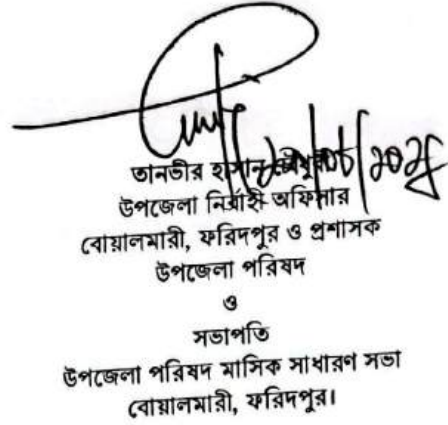 তানভীর হাসান চৌধুরী
উপজেলা নির্বাহী অফিসার
বোয়ালমারী, ফরিদপুর ও প্রশাসক
উপজেলা পরিষদ
ও
সভাপতি
উপজেলা পরিষদ মাসিক সাধারণ সভা
বোয়ালমারী, ফরিদপুর।